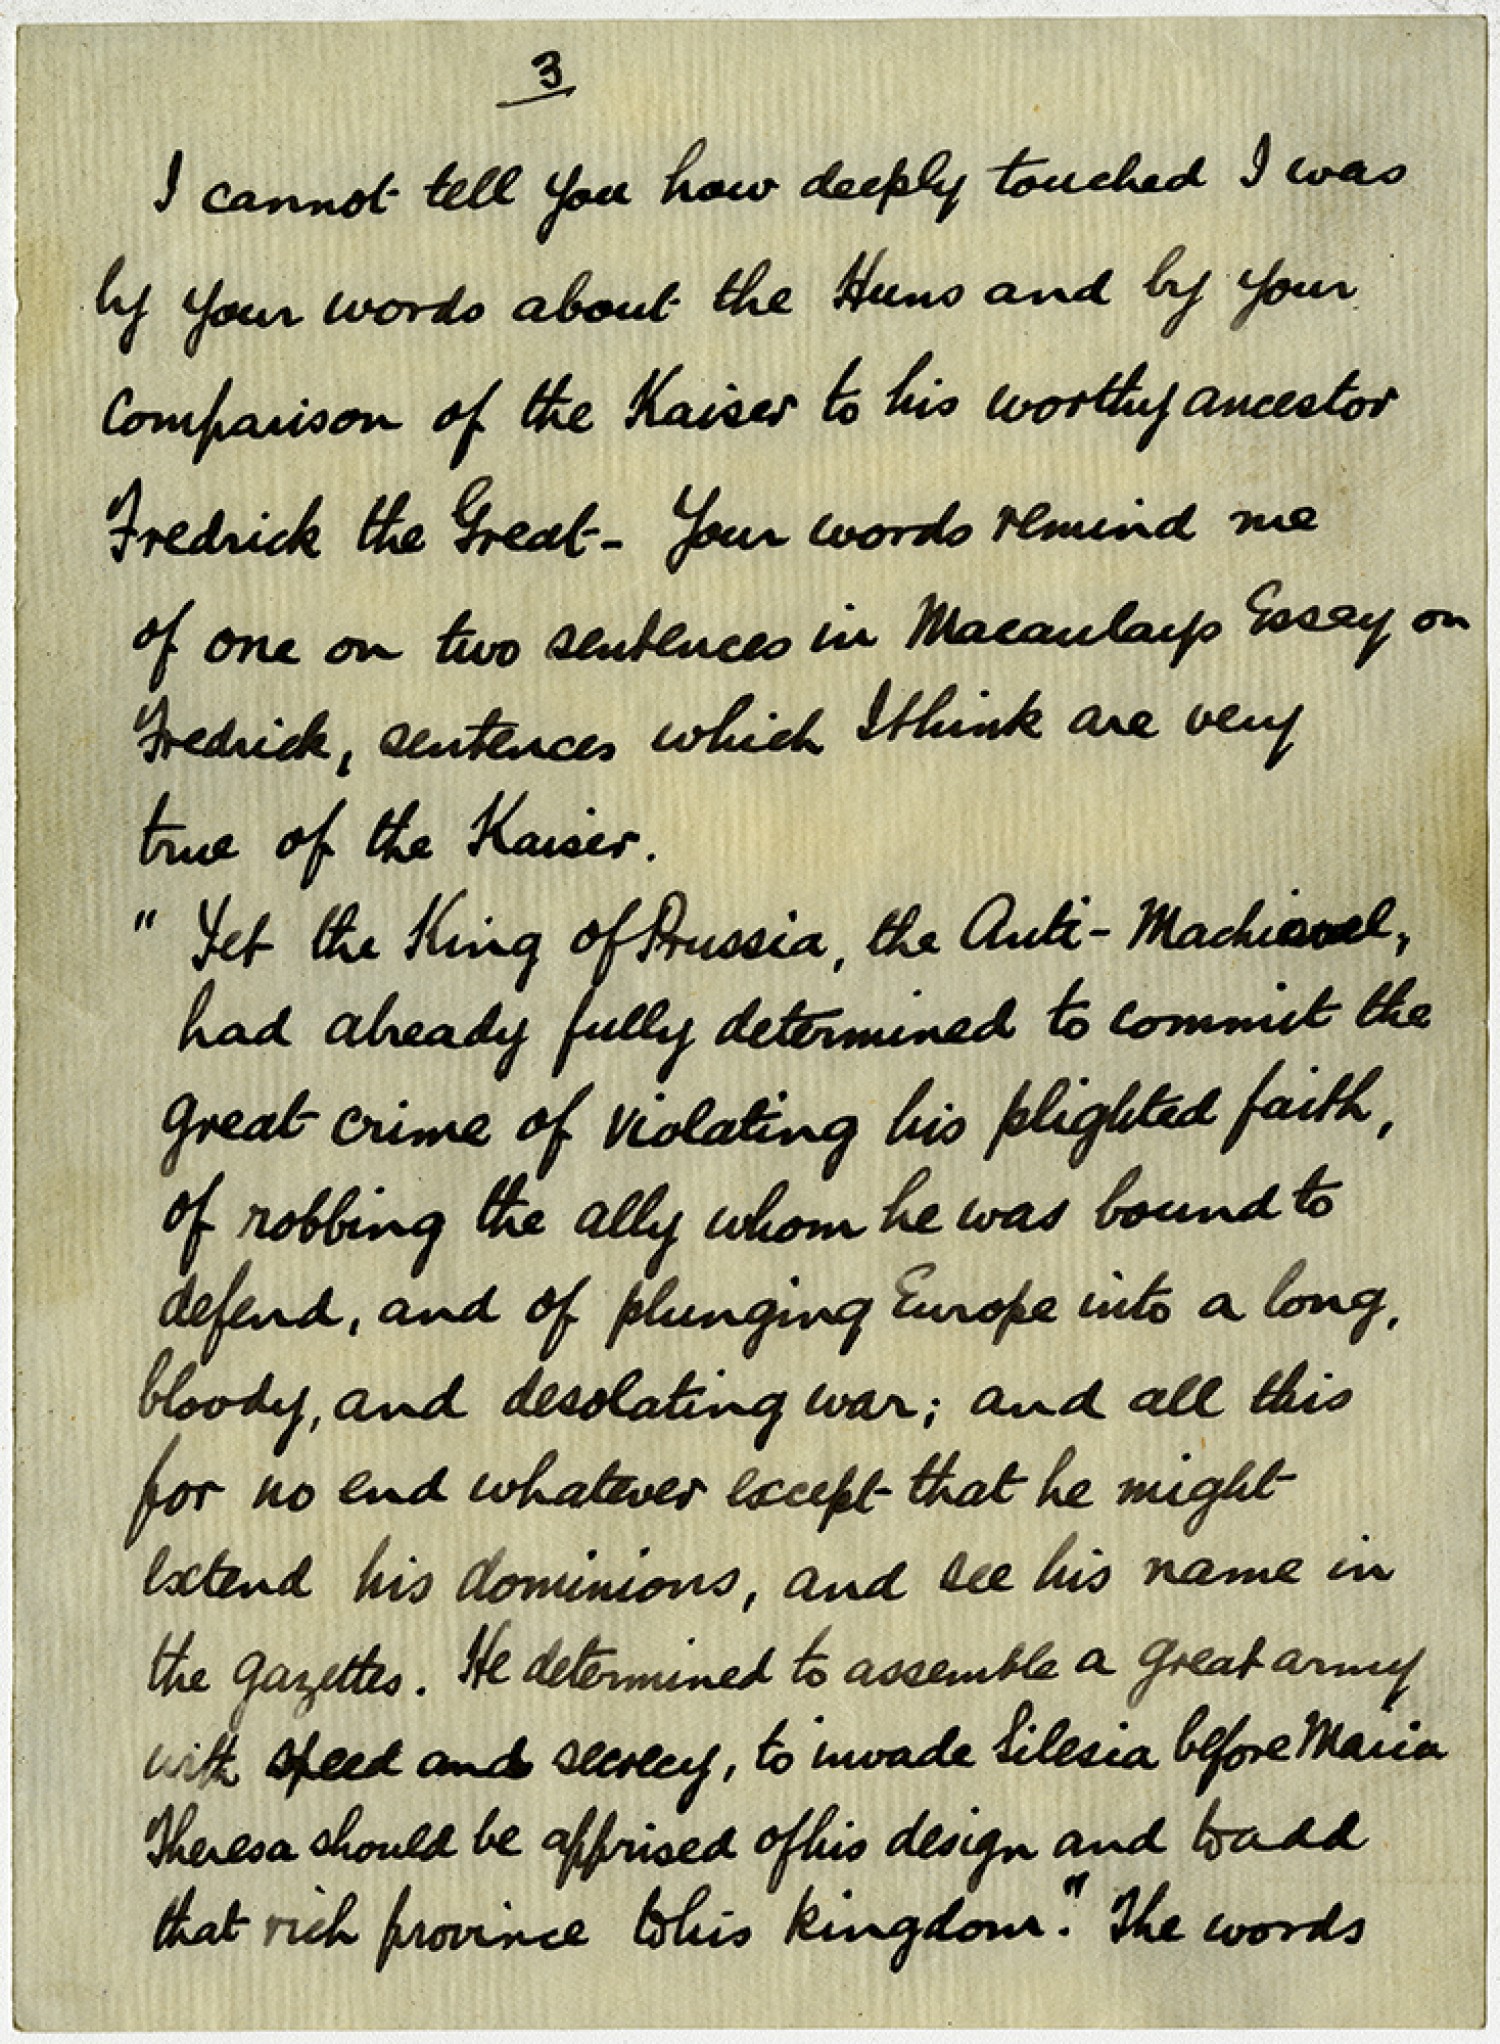 3
I cannot tell you how deeply touched I was
by your words about the Huns and by your
comparison of the Kaiser to his worthy ancestor
Fredrick the Great - Your words remind me
of one or two sentences in Macaulays Essay on
Fredrick, sentences which I think are very
true of the Kaiser.
" Yet the King of Prussia, the Anti-Machiavel,
had already fully determined to commit the
great crime of violating his plighted faith,
of robbing the ally whom he was bound to
defend, and of plunging Europe into a long,
bloody, and desolating war; and all this
for no end whatever except that he might
extend his dominions, and see his name in
the gazettes. He determined to assemble a great army
with speed and secrecy, to invade Silesia before Maria
Theresa should be apprised of his design and to add
that rich province to his kingdom." The words